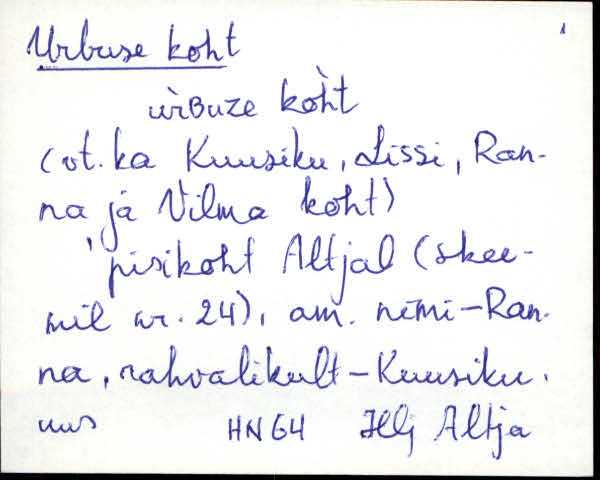 1
Urbuse koht
ùrBuze kòht
(vt. ka Kuusiku, Lissi, Ran-
na ja Vilma koht)
'pisikoht Altjal (skee-
mil nr. 24), am. nimi-Ran-
na, rahvalikult-Kuusiku.
uus HN64 Hlj Altja